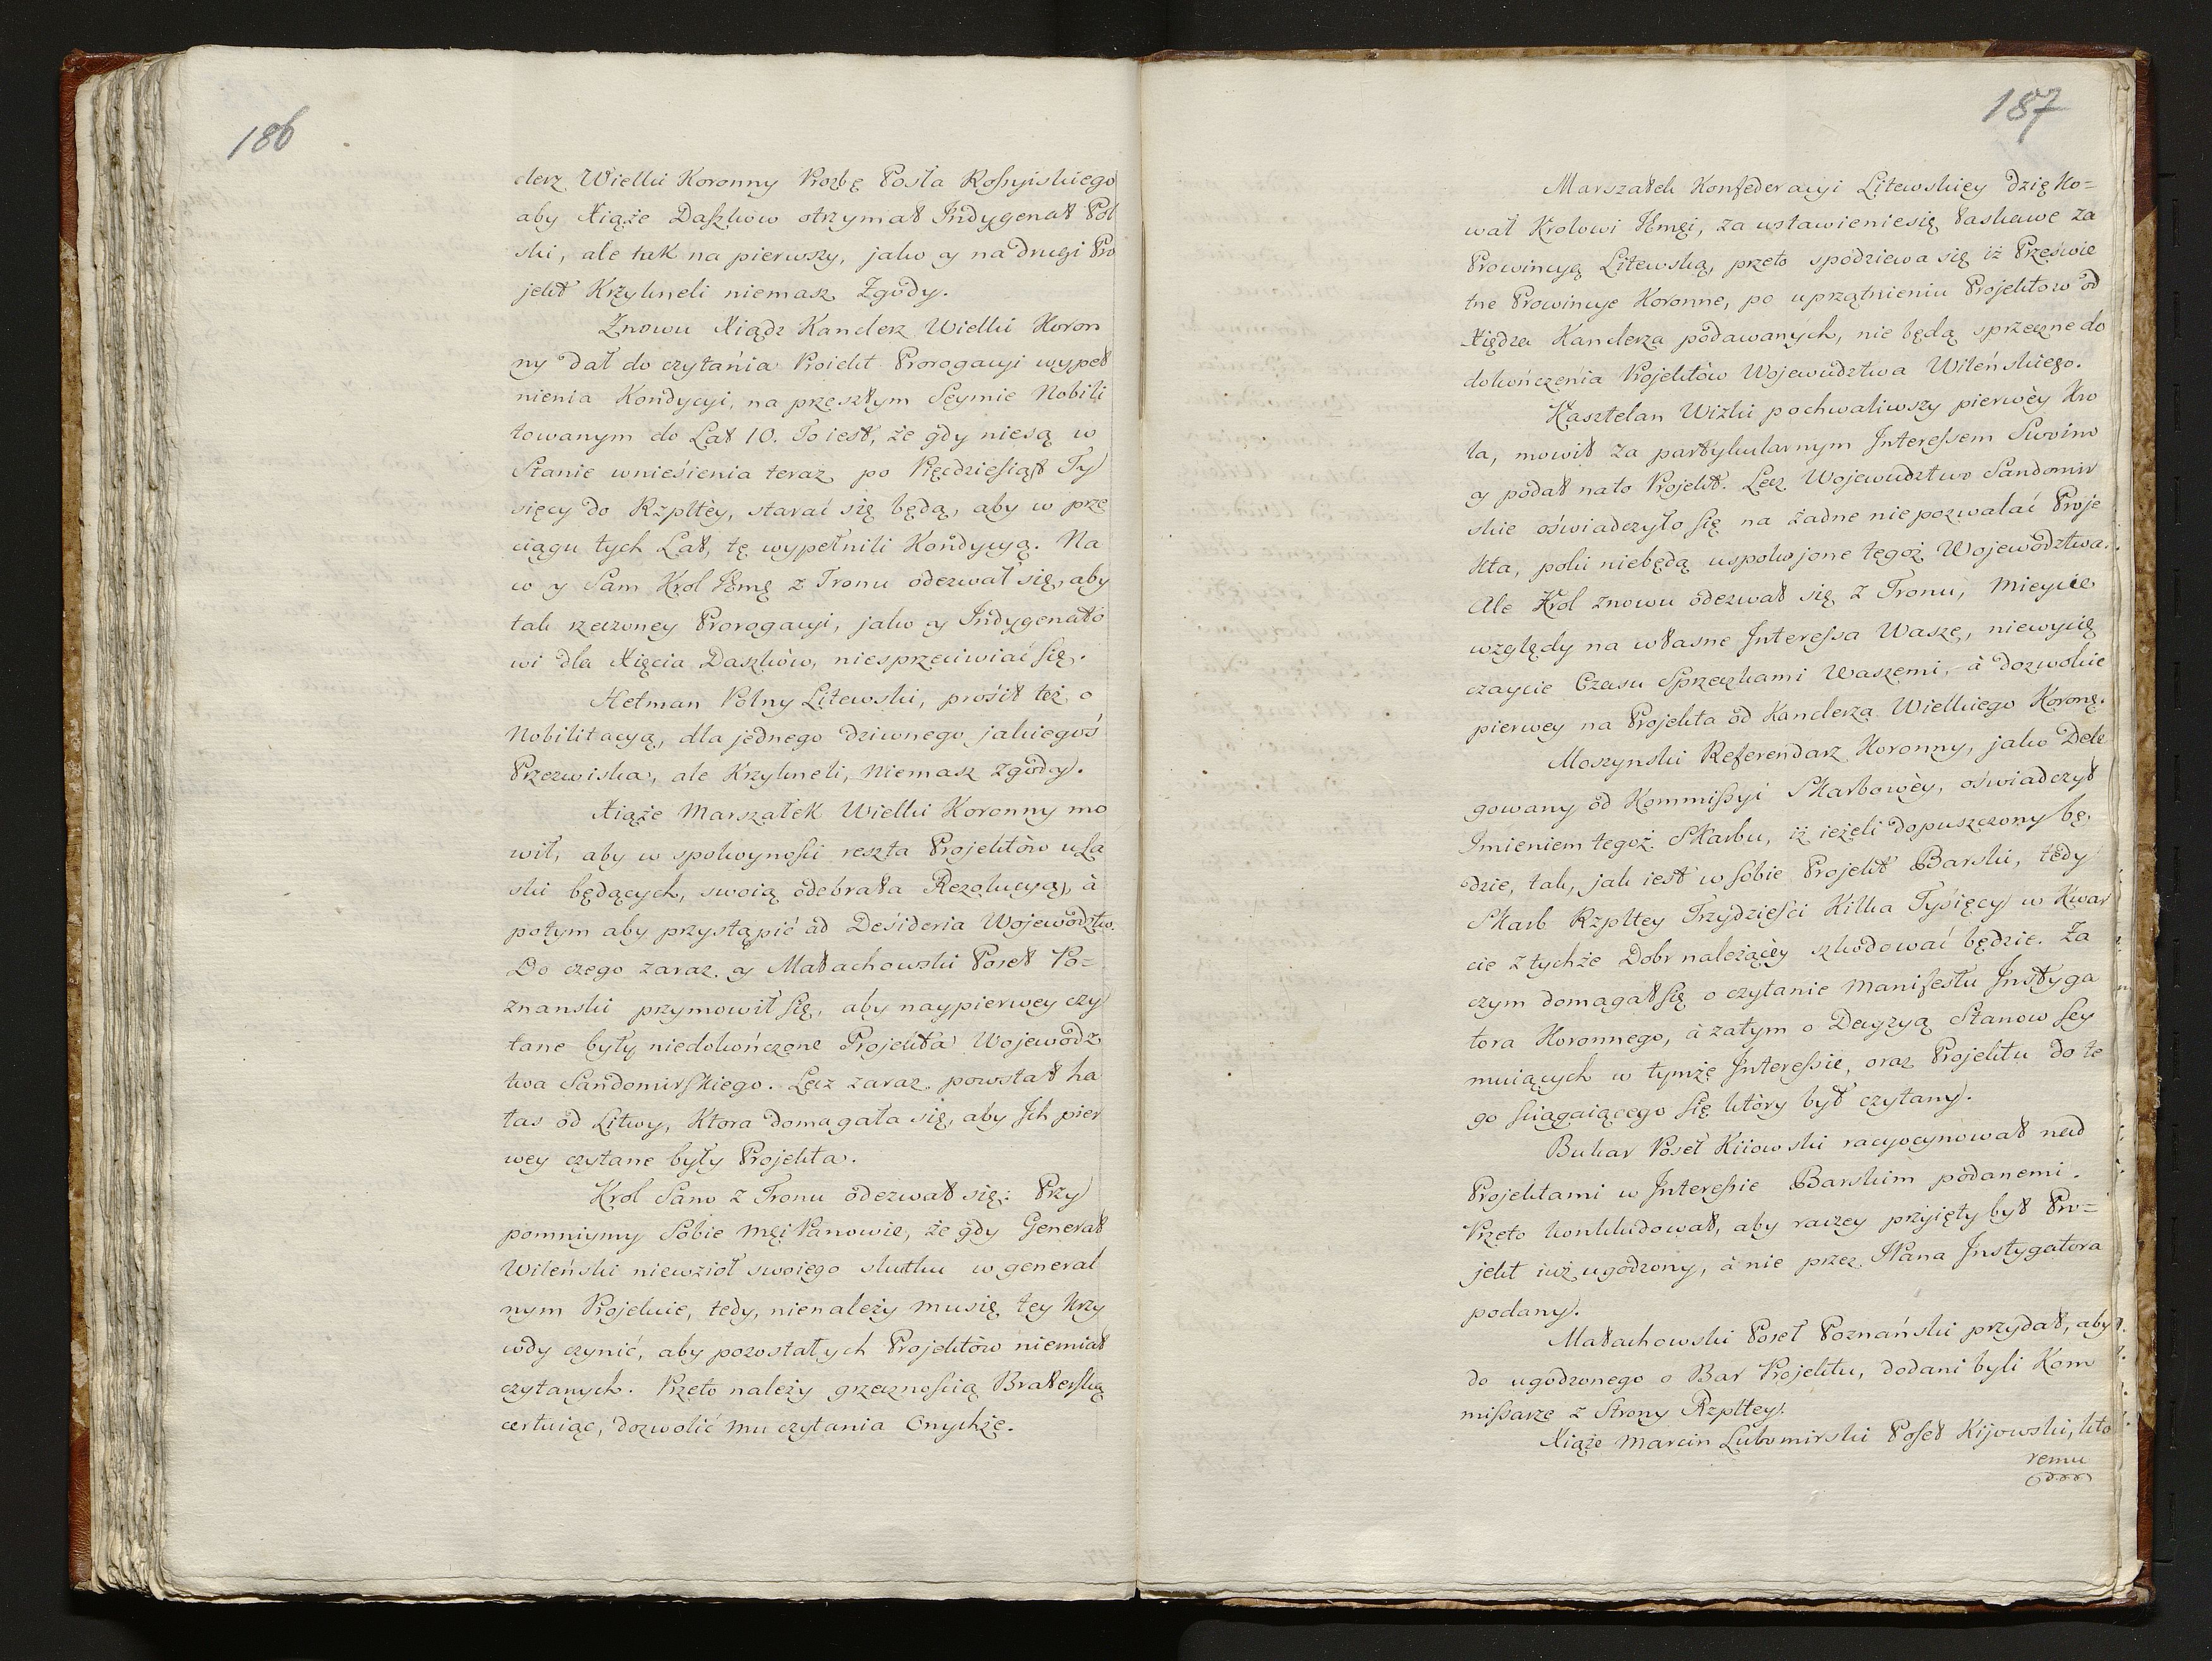 186
clerz Wielki Koronny Prozbę Posła Roſsyiskiego
aby Xiąże Daszkow otrzymał Indygenat Pol
ski, ale tak na pierwszy, jako y na drugi Pro
jekt Krzykneli niemasz Zgody.
Znowu Xiądz Kanclerz Wielki Koron
ny dał do czytania Projekt Prorogacyi wypeł
nienia Kondycyi, na przeszłym Seymie Nobili
towanym do Lat 10. To iest, że gdy niesą w
Stanie wnieśienia teraz po Pięcdzieſiąt Ty
sięcy do Rzpltèy, starać się będą, aby w prze
ciągu tych Lat, tę wypełnili Kondycyą. Na
co y Sam Krol Jmę z Tronu odezwał się, aby
tak rzeczoney Prorogacyi, jako y Indygenato
wi dla Xięcia Daszków, niesprzeciwiać ſię.
Hetman Polny Litewski, prośił też o
Nobilitacyą, dla jednego dziwnego jakiegoś
Przezwiska, ale Krzykneli, Niemasz zgody.
Xiąże Marszałek Wielki Koronny mo
wił, aby w spokoynoſci reszta Projektów u Ła
ski będących, swoią odebrała Rezolucyą, à
potym aby przystąpić ad Deśideria Wojewodztw.
Do czego zaraz y Małachowski Poseł Po=
znanski przymowił ſię, aby naypierwey czy
tane były niedokończone Projekta Wojewodz
twa Sandomirſkiego. Lecz zaraz powstał ha
łas od Litwy, Ktora domagała się, aby Jch pier
wey czytane były Projekta.
Krol Sam z Tronu odezwał się: Przy
pomniymy Sobie Męi Panowie, że gdy Generał
Wileński niewzioł swoiego skutku w general
nym Projekcie, tedy, nienależy mu się tęy krzy
wdy czynić, aby pozostałych Projektów niemiał
czytanych. Przeto należy grzecznoſcią Braterſką
certuiąc, dozwolić mu czytania Onychże.
187
Marszałek Konfederacyi Litewskięy dzięko=
wał Krolowi Jmęi, za wstawieniesię łaskawe za
Prowincyą Litewską, przeto spodziewa się iż Prześwie
tne Prowincye Koronne, po uprzątnieniu Projektow od
Xiędza Kanclerza podawanych, nie będą sprzeczne do
dokończenia Projektòw Wojewudztwa Wileńskiego.
Kasztelan Wizki pochwaliwszy pierwèy Kro
la, mowił za partykularnym Intereſsem Swoim
y podał nato Projekt. Lecz Wojewudztwo Sandomir
skie oświadczyło ſię na żadne niepozwalać Proje
kta, poki niebędą uspokojone tegoż Wojewodztwa.
Ale Krol znowu odezwał się z Tronu, Mieycie
względy na własne Intereſsa Wasze, niewycię
czaycie Czasu Sprzeczkami Waszemi, à dozwolcie
pierwey na Projekta od Kanclerza Wielkiego Koronę.
Moszynski Referendarz Koronny, jako Dele
gowany od Kommiſsyi Skarbowèy, oświadczył
Imieniem tegoż Skarbu, iż ieżeli dopuszczony bę,
dzie, tak, jak iest w ſobie Projekt Barski, tedy
Skarb Rzpltey Trzydzieſci Kilka Tyśięcy w Kwar
cie z tychże Dobr należącèy szkodować będzie. Za
czym domagał ſię o czytanie Manifestu Instyga
tora Koronnego, à zatym o Decyzyą Stanow ſey
muiących w tymże Intereſsie, oraz Projektu do te
go ſciągaiącego ſię ktòry był czytany.
Bukar Poseł Kiiowski racyocynował nad
Projektami w Intereſsie Barskim podanemi.
Przeto konkludował, aby raczey przyięty był Pro=
jekt iuż ugodzony, à nie przez JPana Instygatora
podany.
Małachowski Poseł Poznański przydał, aby
do ugodzonego o Bar Projektu, dodani byli Kom
miſsarze z Strony Rzpltey.
Xiąże Marcin Lubomirski Poſeł Kijowski, kto
remu